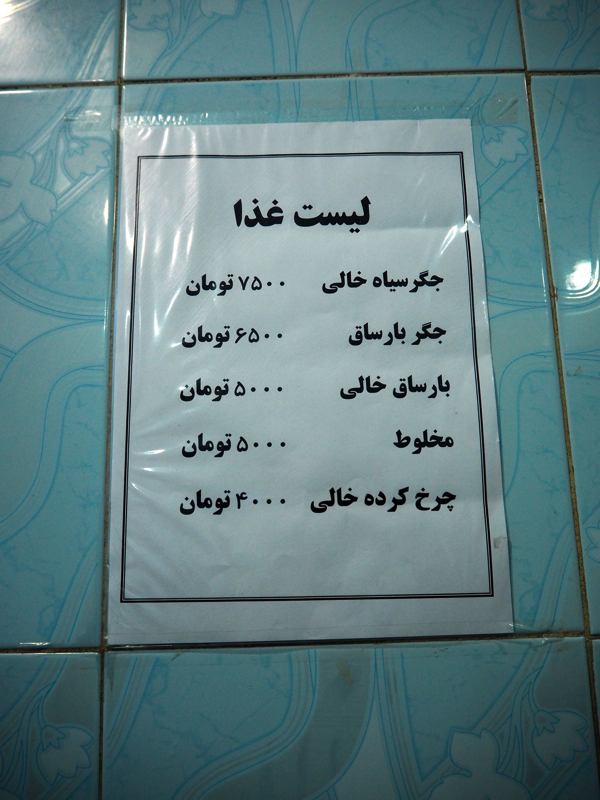 لیست غذا
جگرسیاه خالی ۷۵۰۰ تومان
جگر بارساق ۶۵۰۰ تومان
بارساق خالی ۵۰۰۰ تومان
مخلوط ۵۰۰۰ تومان
چرخ کرده خالی ۴۰۰۰ تومان